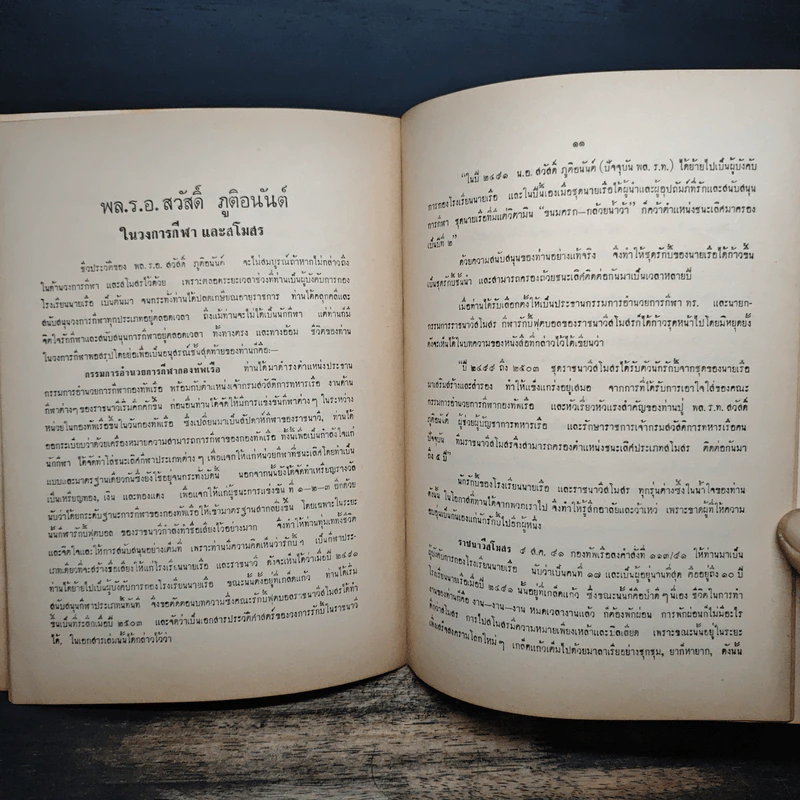 พล.ร.อ. สวัสดิ์ ภูติอนันต์
ในวงการกีฬา และสโมสร
ชีวประวัติของ พล.ร.อ. สวัสดิ์ ภูติอนันต์ จะไม่สมบูรณ์ถ้าหากไม่กล่าวถึง
ในด้านวงการกีฬา และสโมสรไว้ด้วย เพราะตลอดระยะเวลาช่วงที่ท่านเป็นผู้บังคับการกอง
โรงเรียนนายเรือ เป็นต้นมา จนกระทั่งท่านได้ปลดเกษียณอายุราชการ ท่านได้คลุกคลีและ
สนับสนุนวงการกีฬาทุกประเภทอยู่ตลอดเวลา ถึงแม้ท่านจะไม่ได้เป็นนักกีฬา แต่ท่านก็มี
จิตใจรักกีฬาและสนับสนุนการกีฬาอยู่ตลอดเวลา ทั้งทางตรง และทางอ้อม ชีวิตของท่าน
ในวงการกีฬาพอสรุปโดยย่อเพื่อเป็นอนุสรณ์ขั้นสุดท้ายของท่านก็คือ:—
กรรมการอำนวยการกีฬากองทัพเรือ ท่านได้มาดำรงตำแหน่งประธาน
กรรมการอำนวยการกีฬากองทัพเรือ พร้อมกับตำแหน่งเจ้ากรมสวัสดิการทหารเรือ งานด้าน
กีฬาต่างๆ ของราชนาวีเริ่มคึกคักขึ้น ก่อนอื่นท่านได้จัดให้มีการแข่งขันกีฬาต่างๆ ในระหว่าง
หน่วยในกองทัพเรือขึ้นในวันกองทัพเรือ ซึ่งเปลี่ยนมาเป็นสัปดาห์กีฬาของราชนาวี, ท่านได้
ออกระเบียบว่าด้วยเครื่องหมายความสามารถการกีฬาของกองทัพเรือ ทั้งนี้เพื่อเป็นกำลังใจแก่
นักกีฬา ได้จัดทำโล่ชนะเลิศกีฬาประเภทต่างๆ เพื่อแจกให้แก่หน่วยกีฬาที่ชนะเลิศโดยทำเป็น
แบบและมาตรฐานเดียวกันซึ่งยังใช้อยู่จนกระทั่งบัดนี้ นอกจากนั้นยังได้จัดทำเหรียญรางวัล
เป็นเหรียญทอง, เงิน และทองแดง เพื่อแจกให้แก่ผู้ชนะการแข่งขัน ที่ ๑–๒–๓ อีกด้วย
นับว่าโดยกระดับฐานะการกีฬาของกองทัพเรือให้เข้ามาตรฐานสากลยิ่งขึ้น โดยเฉพาะในระยะ
นั้นกีฬารักบี้ฟุตบอล ของราชนาวีกำลังทำชื่อเสียงไว้อย่างมาก จึงทำให้ท่านทุ่มเททั้งชีวิต
และจิตใจและให้การสนับสนุนอย่างเต็มที่ เพราะท่านมีความคิดเห็นว่ารักบี้ฯ เป็นกีฬาประ-
เภทเดียวที่จะสร้างชื่อเสียงให้แก่โรงเรียนนายเรือ และราชนาวี ดังจะเห็นได้ว่าเมื่อปี ๒๔๙๑
ท่านได้ย้ายไปเป็นผู้บังคับการกองโรงเรียนนายเรือ ขณะนั้นตั้งอยู่ที่เกล็ดแก้ว ท่านได้เริ่ม
สนับสนุนกีฬาประเภทนี้ทันที จึงขอคัดตัดตอนบทความซึ่งคณะรักบี้ฟุตบอลราชนาวีสโมสรได้ทำ
ขึ้นเป็นที่ระลึกเมื่อปี ๒๕๐๓ และจัดว่าเป็นเอกสารประวัติศาสตร์ของวงการรักบี้ในราชนาวี
ได้, ในเอกสารเล่มนั้นได้กล่าวไว้ว่า
๑๑
"ในปี ๒๔๙๑ น.อ. สวัสดิ์ ภูติอนันต์ (ปัจจุบัน พล. ร.ท.) ได้ย้ายไปเป็นผู้บังคับ
การกองโรงเรียนนายเรือ และในปีนี้เองเมื่อชุดนายเรือได้ผู้นำและผู้อุปถัมภ์ที่รักและสนับสนุน
การกีฬา ชุดนายเรือที่มีแต่วิตามิน "ขนมครก—กล้วยน้ำว้า" ก็คว้าตำแหน่งชนะเลิศมาครอง
เป็นปีที่ ๒"
ด้วยความสนับสนุนของท่านอย่างแท้จริง จึงทำให้ชุดรักบี้ของนายเรือได้ก้าวขึ้น
เป็นชุดรักบี้ชั้นนำ และสามารถครองถ้วยชนะเลิศติดต่อกันมาเป็นเวลาหลายปี
เมื่อท่านได้รับเลือกตั้งให้เป็นประธานกรรมการอำนวยการกีฬา ทร. และนายก-
กรรมการราชนาวีสโมสร กีฬารักบี้ฟุตบอลของราชนาวีสโมสรก็ได้ก้าวรุดหน้าไปโดยมิหยุดยั้ง
ดังจะเห็นได้ในบทความของหนังสือที่กล่าวไว้ได้เขียนว่า
"ปี ๒๔๙๙ ถึง ๒๕๐๓ ชุดราชนาวีสโมสรได้รับตัวนักรักบี้จากชุดของนายเรือ
มาเสริมสร้างและสำรอง ทำให้แข็งแกร่งอยู่เสมอ จากการที่ได้รับการเอาใจใส่ของคณะ
กรรมการอำนวยการกีฬากองทัพเรือ และหัวเรี่ยวหัวแรงสำคัญของท่านปู่ พล. ร.ท. สวัสดิ์
ภูติอนันต์ ผู้ช่วยผู้บัญชาการทหารเรือ และรักษาราชการเจ้ากรมสวัสดิการทหารเรือคน
ปัจจุบัน ทีมราชนาวีสโมสรจึงสามารถครองตำแหน่งชนะเลิศประเภทสโมสร ติดต่อกันมา
ถึง ๕ ปี"
นักรักบี้ของโรงเรียนนายเรือ และราชนาวีสโมสร ทุกรุ่นต่างซึ้งในน้ำใจของท่าน
ดังนั้น ในโอกาสที่ท่านได้จากพวกเราไป จึงทำให้รู้สึกอาลัยและว้าเหว่ เพราะขาดผู้ที่ให้ความ
อบอุ่นเป็นกันเองแก่นักรักบี้ไปอีกผู้หนึ่ง
ราชนาวีสโมสร ๔ ส.ค. ๔๑ กองทัพเรือลงคำสั่งที่ ๑๑๓/๔๑ ให้ท่านมาเป็น
ผู้บังคับการกองโรงเรียนนายเรือ นับว่าเป็นคนที่ ๑๗ และเป็นผู้อยู่นานที่สุด คืออยู่ถึง ๑๐ ปี
โรงเรียนนายเรือเมื่อปี ๒๔๙๑ นั้นอยู่ที่เกล็ดแก้ว ซึ่งขณะนั้นก็คือป่าดีๆ นี่เอง ชีวิตในการทำ
งานของท่านก็คือ งาน—งาน—งาน หมดเวลางานแล้ว ก็ต้องพักผ่อน การพักผ่อนก็ไม่มีอะไร
ดีกว่าสโมสร การไปสโมสรมีความหมายเพียงเหล้าและบิลเลียด เพราะขณะนั้นอยู่ในระยะ
เพิ่งเสร็จสงครามโลกใหม่ๆ เกล็ดแก้วเต็มไปด้วยมาลาเรียอย่างชุกชุม, ยาก็หายาก, ดังนั้น